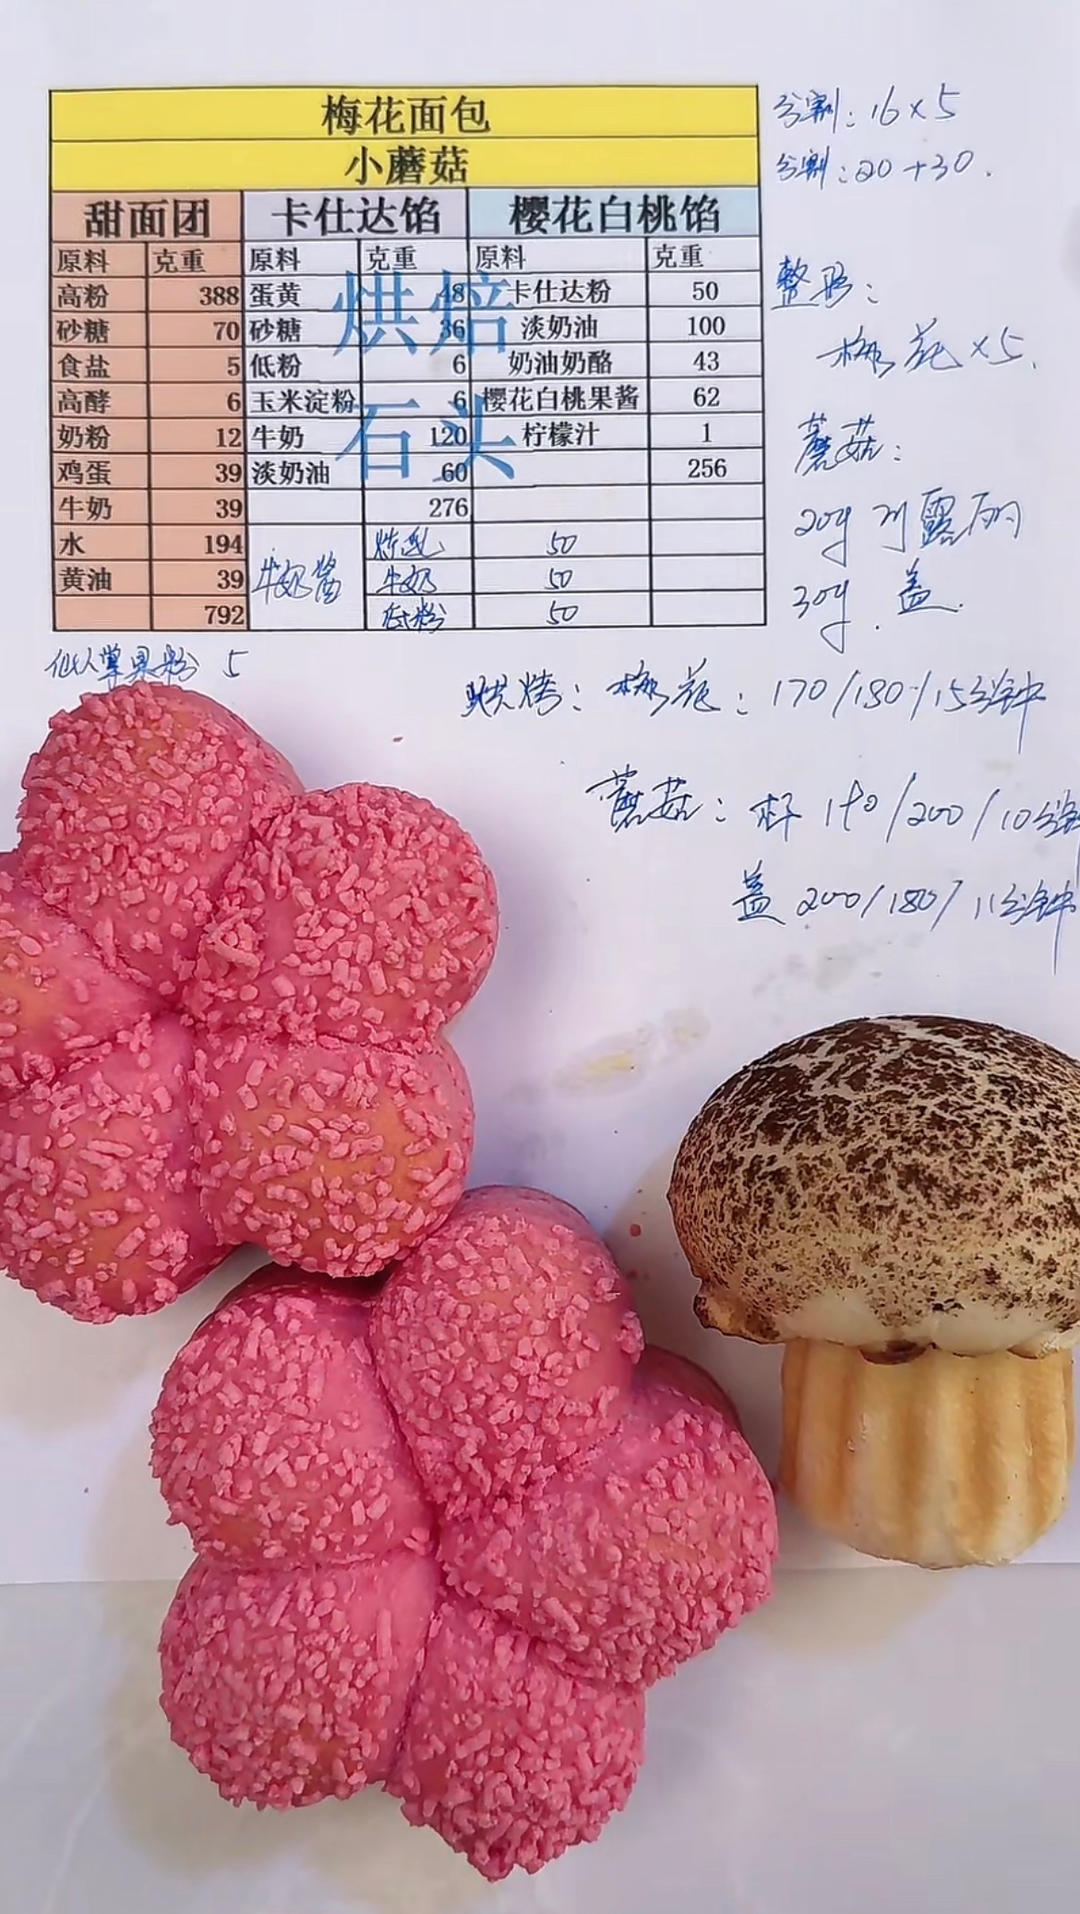 梅花面包
小蘑菇
甜面团 卡仕达馅 樱花白桃馅
原料 克重 原料 克重 原料 克重
高粉 388 蛋黄 48 卡仕达粉 50
砂糖 70 砂糖 36 淡奶油 100
食盐 5 低粉 6 奶油奶酪 43
高酵 6 玉米淀粉 6 樱花白桃果酱 62
奶粉 12 牛奶 120 柠檬汁 1
鸡蛋 39 淡奶油 60 256
牛奶 39 276
水 194 炼乳 50
黄油 39 牛奶酱 牛奶 50
792 低粉 50
烘焙
石头
仙人掌果粉 5
分割：16×5
分割：20+30.
整形：
梅花×5.
蘑菇：
20g
30g. 盖.
烘烤：梅花：170/180/15分钟
蘑菇：杆 190/200/10分钟
盖 200/180/11分钟